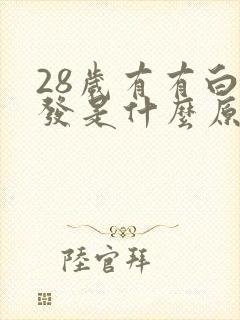 28歲有有白
發是什麼原
陸官拜